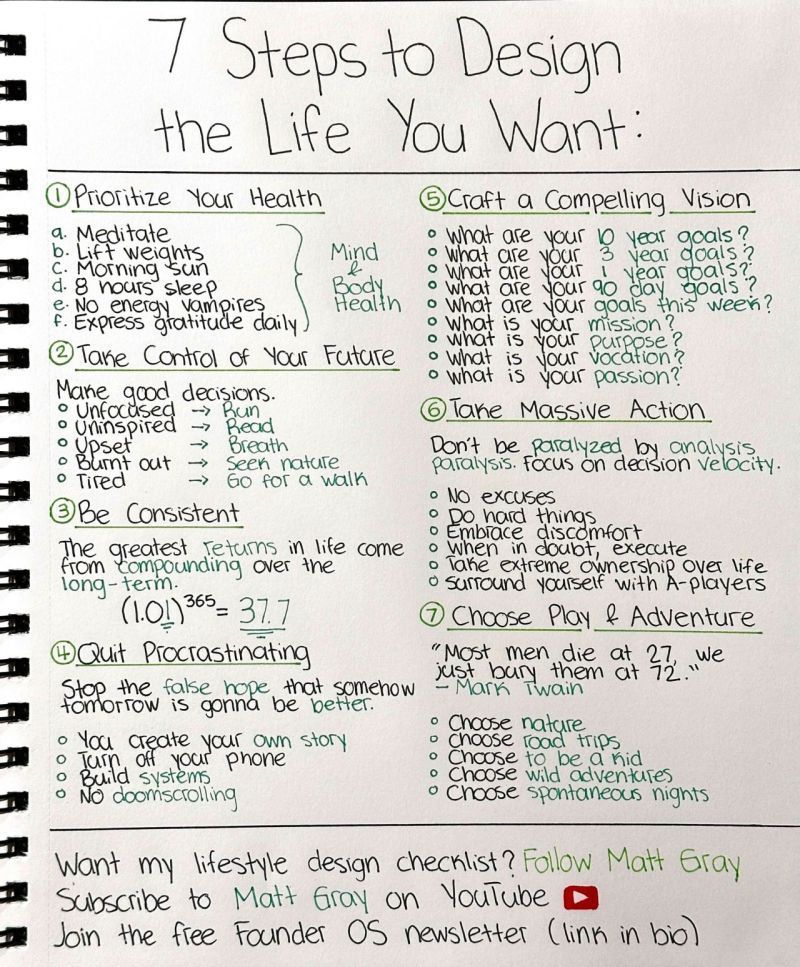 7 Steps to Design
the Life You Want:
① Prioritize Your Health
a. Meditate
b. Lift weights
c. Morning sun
d. 8 hours sleep
e. No energy vampires
f. Express gratitude daily
Mind
&
Body
Health
② Take Control of Your Future
Make good decisions.
○ Unfocused → Run
○ Uninspired → Read
○ Upset → Breath
○ Burnt out → Seek nature
○ Tired → Go for a walk
③ Be Consistent
The greatest returns in life come
from compounding over the
long-term.
(1.01)³⁶⁵ = 37.7
④ Quit Procrastinating
Stop the false hope that somehow
tomorrow is gonna be better.
○ You create your own story
○ Turn off your phone
○ Build systems
○ No doomscrolling
⑤ Craft a Compelling Vision
○ What are your 10 year goals?
○ What are your 3 year goals?
○ What are your 1 year goals?
○ What are your 90 day goals?
○ What are your goals this week?
○ What is your mission?
○ What is your purpose?
○ What is your vocation?
○ What is your passion?
⑥ Take Massive Action
Don't be paralyzed by analysis
paralysis. Focus on decision velocity.
○ No excuses
○ Do hard things
○ Embrace discomfort
○ When in doubt, execute
○ Take extreme ownership over life
○ Surround yourself with A-players
⑦ Choose Play & Adventure
"Most men die at 27, we
just bury them at 72."
- Mark Twain
○ Choose nature
○ Choose road trips
○ Choose to be a kid
○ Choose wild adventures
○ Choose spontaneous nights
Want my lifestyle design checklist? Follow Matt Gray
Subscribe to Matt Gray on YouTube
Join the free Founder OS newsletter (link in bio)